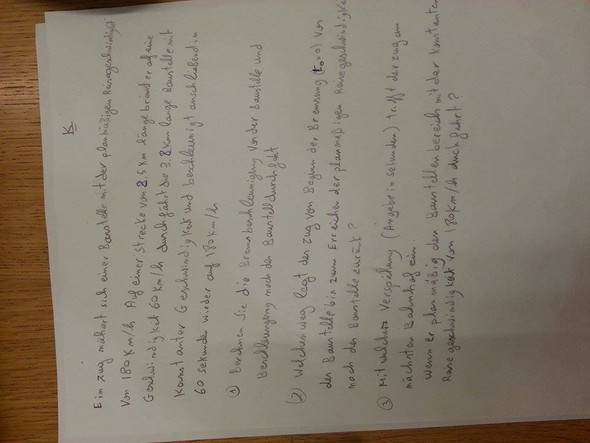 K
Ein Zug nähert sich einer Baustelle mit der planmäßigen Reisegeschwindigkeit
von 180 km/h Auf einer Strecke von 2,5 km länge brand er auf eine
Geschwindigkeit 60 km/h durchfährt die 3,8 km lange Baustelle mit
Konstanter Geschwindigkeit und beschleunigt anschließend in
60 sekunden wieder auf 180 km/h
① Berechnen Sie die Bremsbeschleunigung vor der Baustelle und
Beschleunigung nach den Baustelldurchfahrt
(2) Welchen weg legt der Zug von Beginn der Bremsung (t₀=0) vor
der Baustelle bis zum Erreichen der planmäßigen Reisegeschwindigkeit
nach der Baustelle zurück?
③ Mit welcher Verspätung (Angabe in sekunden) trifft der Zug am
nächsten Bahnhof ein.
wenn er planmäßig den Baustellenbereich mit der konstanten
Reisegeschwindigkeit von 180 km/h durchfährt?